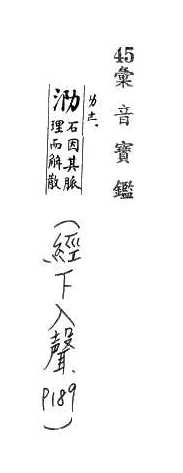 45彙音寶鑑
泐石因其脈
理而解散
(經下入聲、P189)